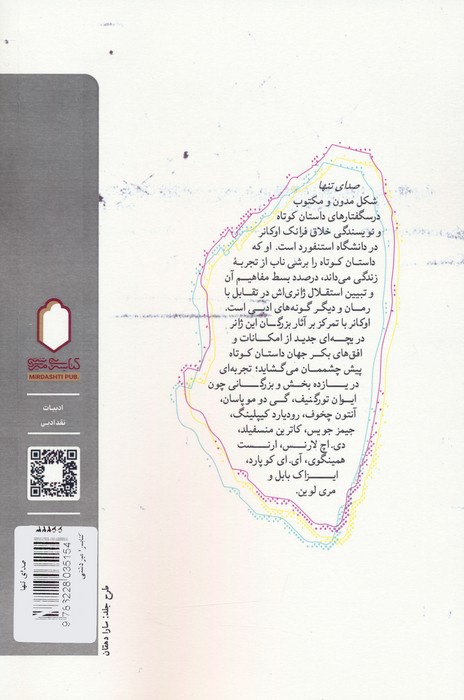 صدای تنها
شکل مدون و مکتوب
درسگفتارهای داستان کوتاه
و نویسندگی خلاق فرانک اوکانر
در دانشگاه استنفورد است. او که
داستان کوتاه را برشی ناب از تجربهٔ
زندگی می‌داند، درصدد بسط مفاهیم آن
و تبیین استقلال ژانری‌اش در تقابل با
رمان و دیگر گونه‌های ادبی است.
اوکانر با تمرکز بر آثار بزرگان این ژانر
دریچه‌ای جدید از امکانات و
افق‌های بکر جهان داستان کوتاه
پیش چشممان می‌گشاید؛ تجربه‌ای
در یـازده بخش و بزرگـانی چون
ایوان تورگنیف، گی دو موپاسان،
آنتون چخوف، رودیارد کیپلینگ،
جیمز جویس، کاترین منسفیلد،
دی. اچ لارنس، ارنست
همینگوی، آی. ای کوپارد،
ایـزاک بابل و
مری لوین.
MIRDASHTI PUB.
ادبیات
نقد ادبی
صدای تنها
کتابسرا میردشتی
9 786228 035154
طرح جلد: سارا دهقان